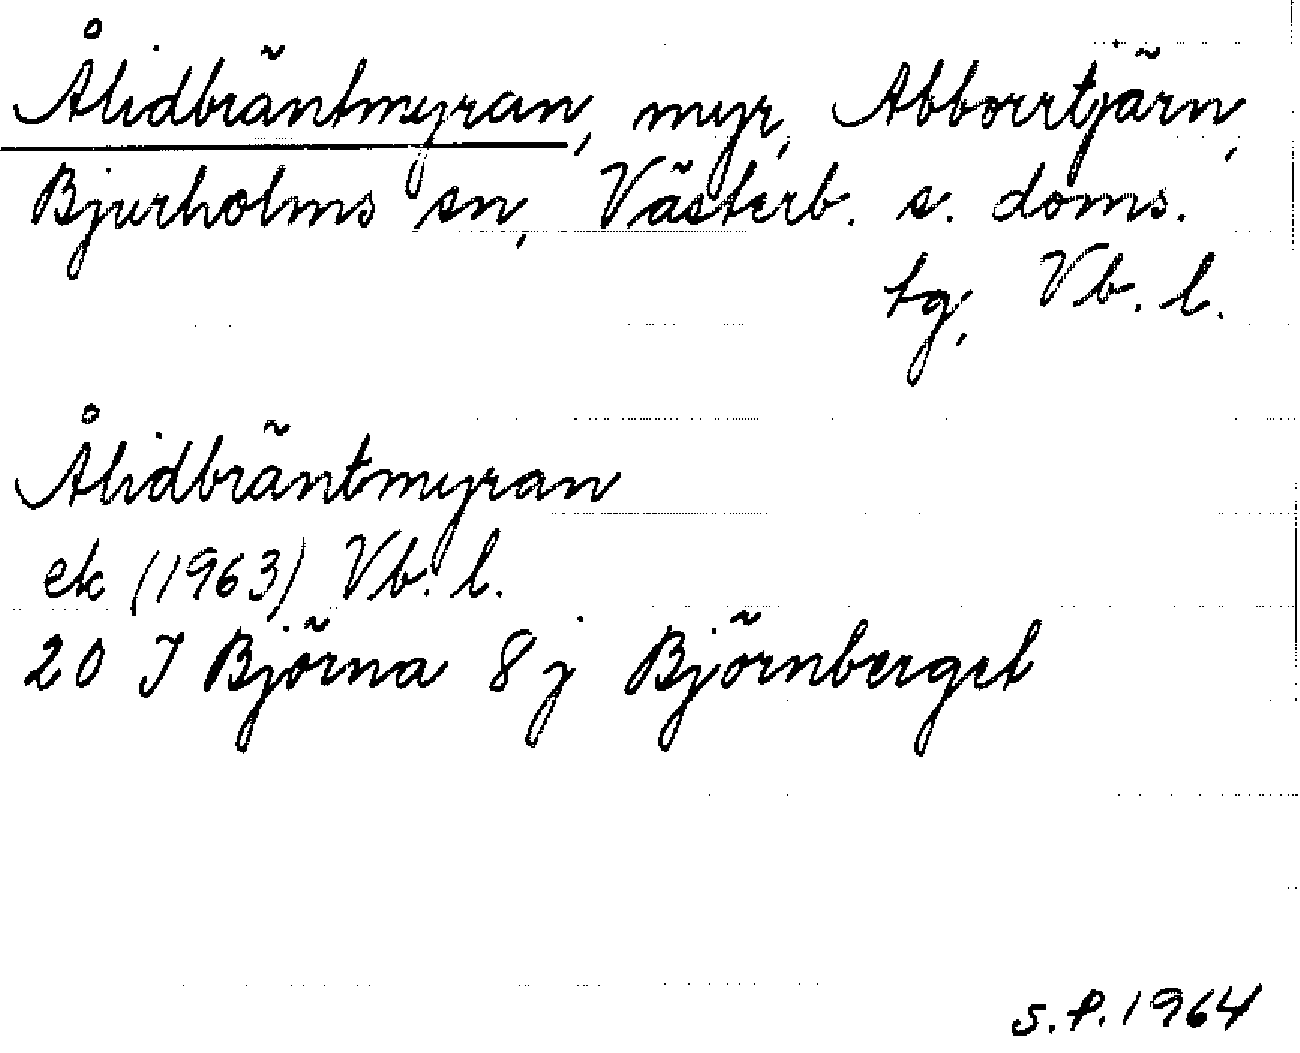 Ålidbräntmyran, myr, Abborrtjärn,
Bjurholms sn, Västerb. s. doms.
tg, Vb. l.
Ålidbräntmyran
ek (1963) Vb. l.
20 J Björna 8 j Björnberget
S.P. 1964